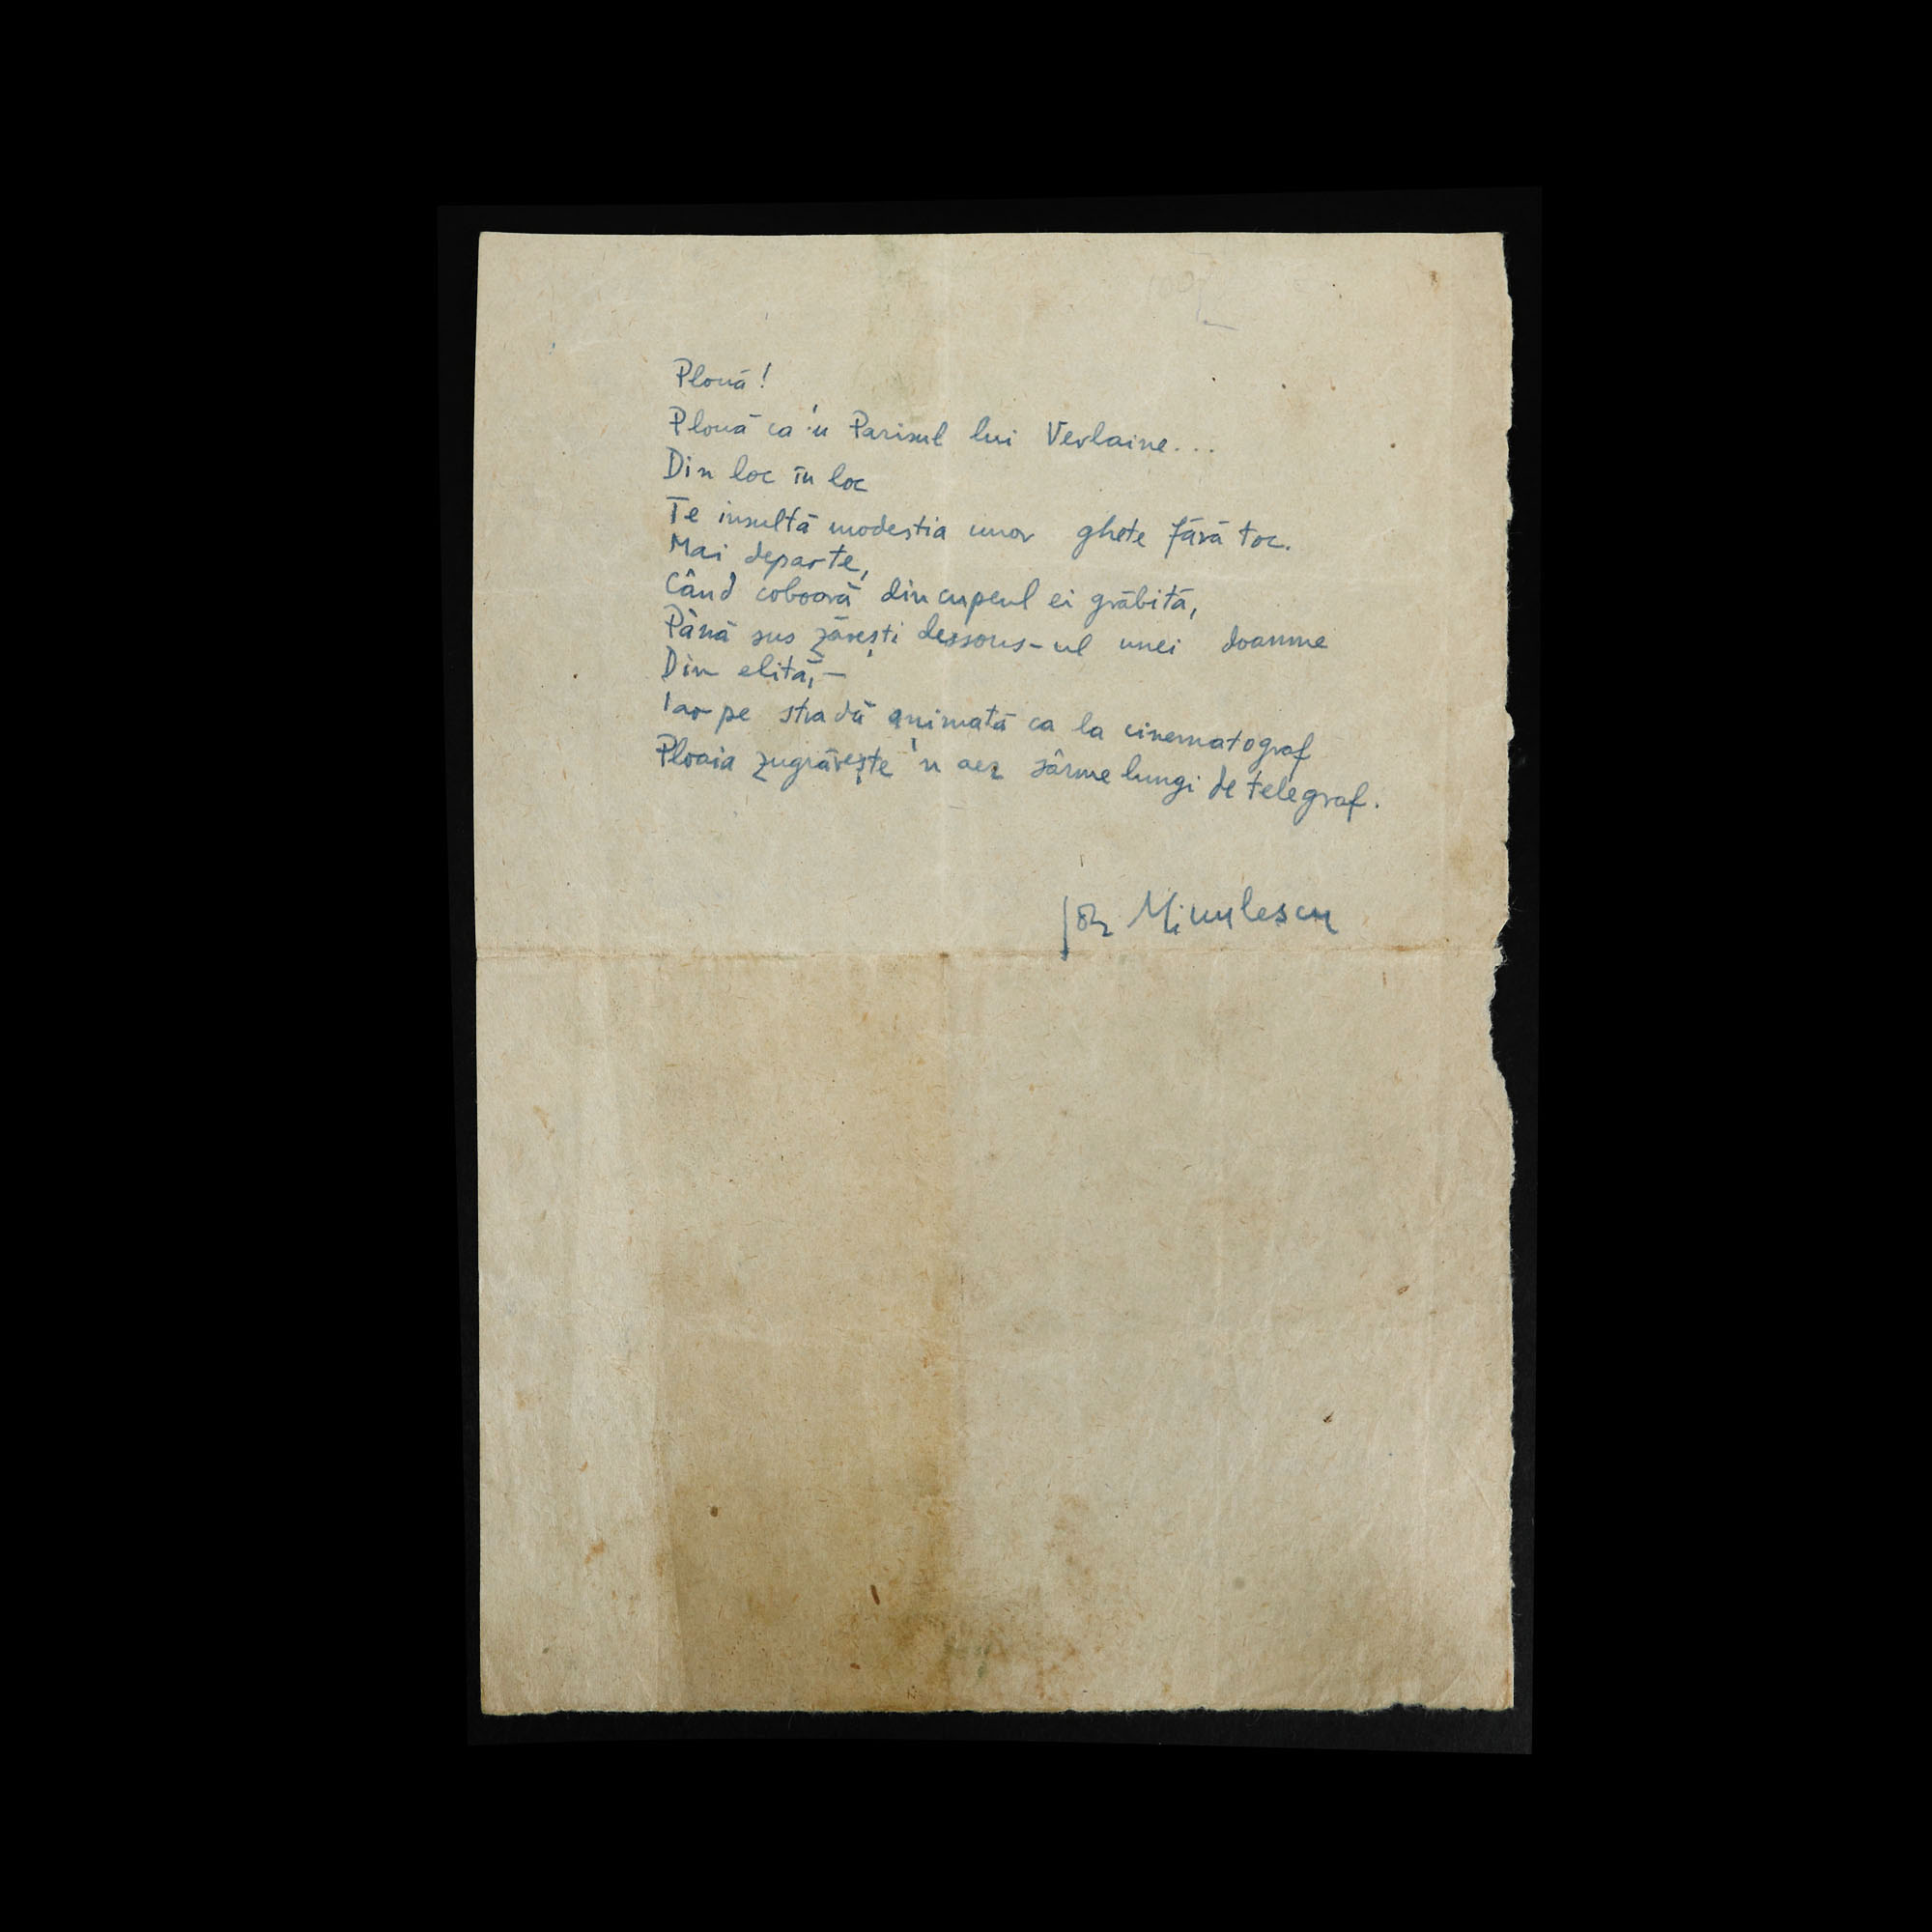 Plouă!
Plouă ca 'n Parisul lui Verlaine...
Din loc în loc
Te insultă modestia unor ghete fără toc.
Mai departe,
Când coboară din cupeul ei grăbită,
Până sus zărești dessous-ul unei doamne
Din elită, —
Iar pe stradă animată ca la cinematograf
Ploaia zugrăvește 'n aer sârme lungi de telegraf.
Ion Minulescu